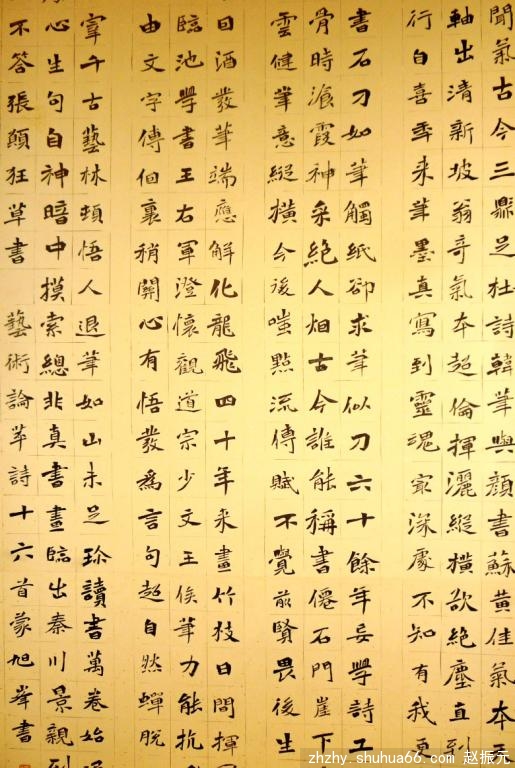 聞氣古今三鼎足杜詩韓筆與顏書蘇黃佳氣本
軸出清新坡翁奇氣本超倫揮灑縱橫欲絕塵直到
行自喜年來筆墨真寫到靈魂最深處不知有我更
書石刀如筆觸紙卻求筆似刀六十餘年妄學詩工
骨時湌霞神采絕人烟古今誰能稱書僊石門崖下
雲健筆意縱橫今後嗤點流傳賦不覺前賢畏後生
日酒發筆端應解化龍飛四十年來畫竹枝日間揮
臨池學書王右軍澄懷觀道宗少文王侯筆力能抗
由文字傳個裏稍關心有悟發為言句超自然蟬脫
寥千古藝林頓悟人退筆如山未足珍讀書萬卷始
心生句自神暗中摸索總非真書畫臨出秦川景親到
不答張顛狂草書 藝術論萃詩十六首蒙旭峯書
zhzhy.shuhua66.com 赵振元